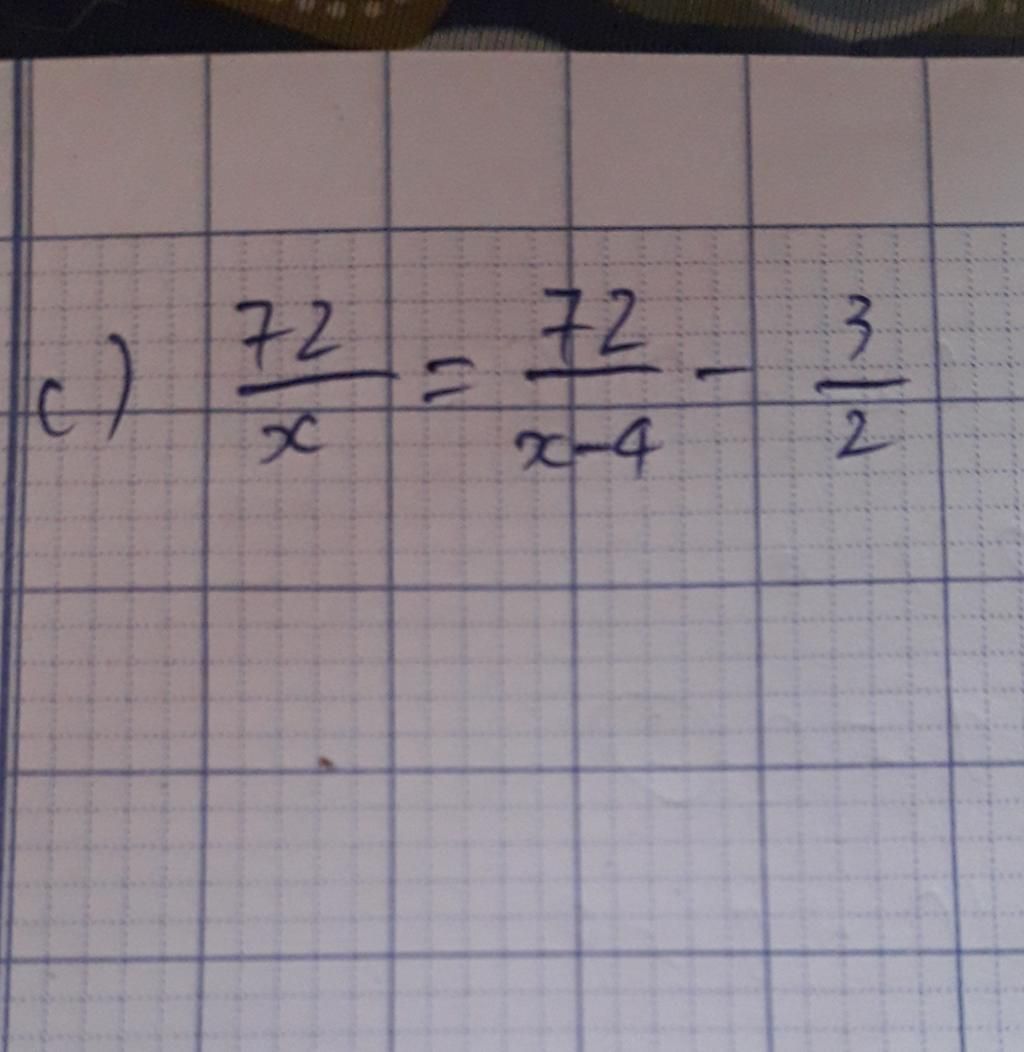 c) 72/x = 72/x-4 - 3/2